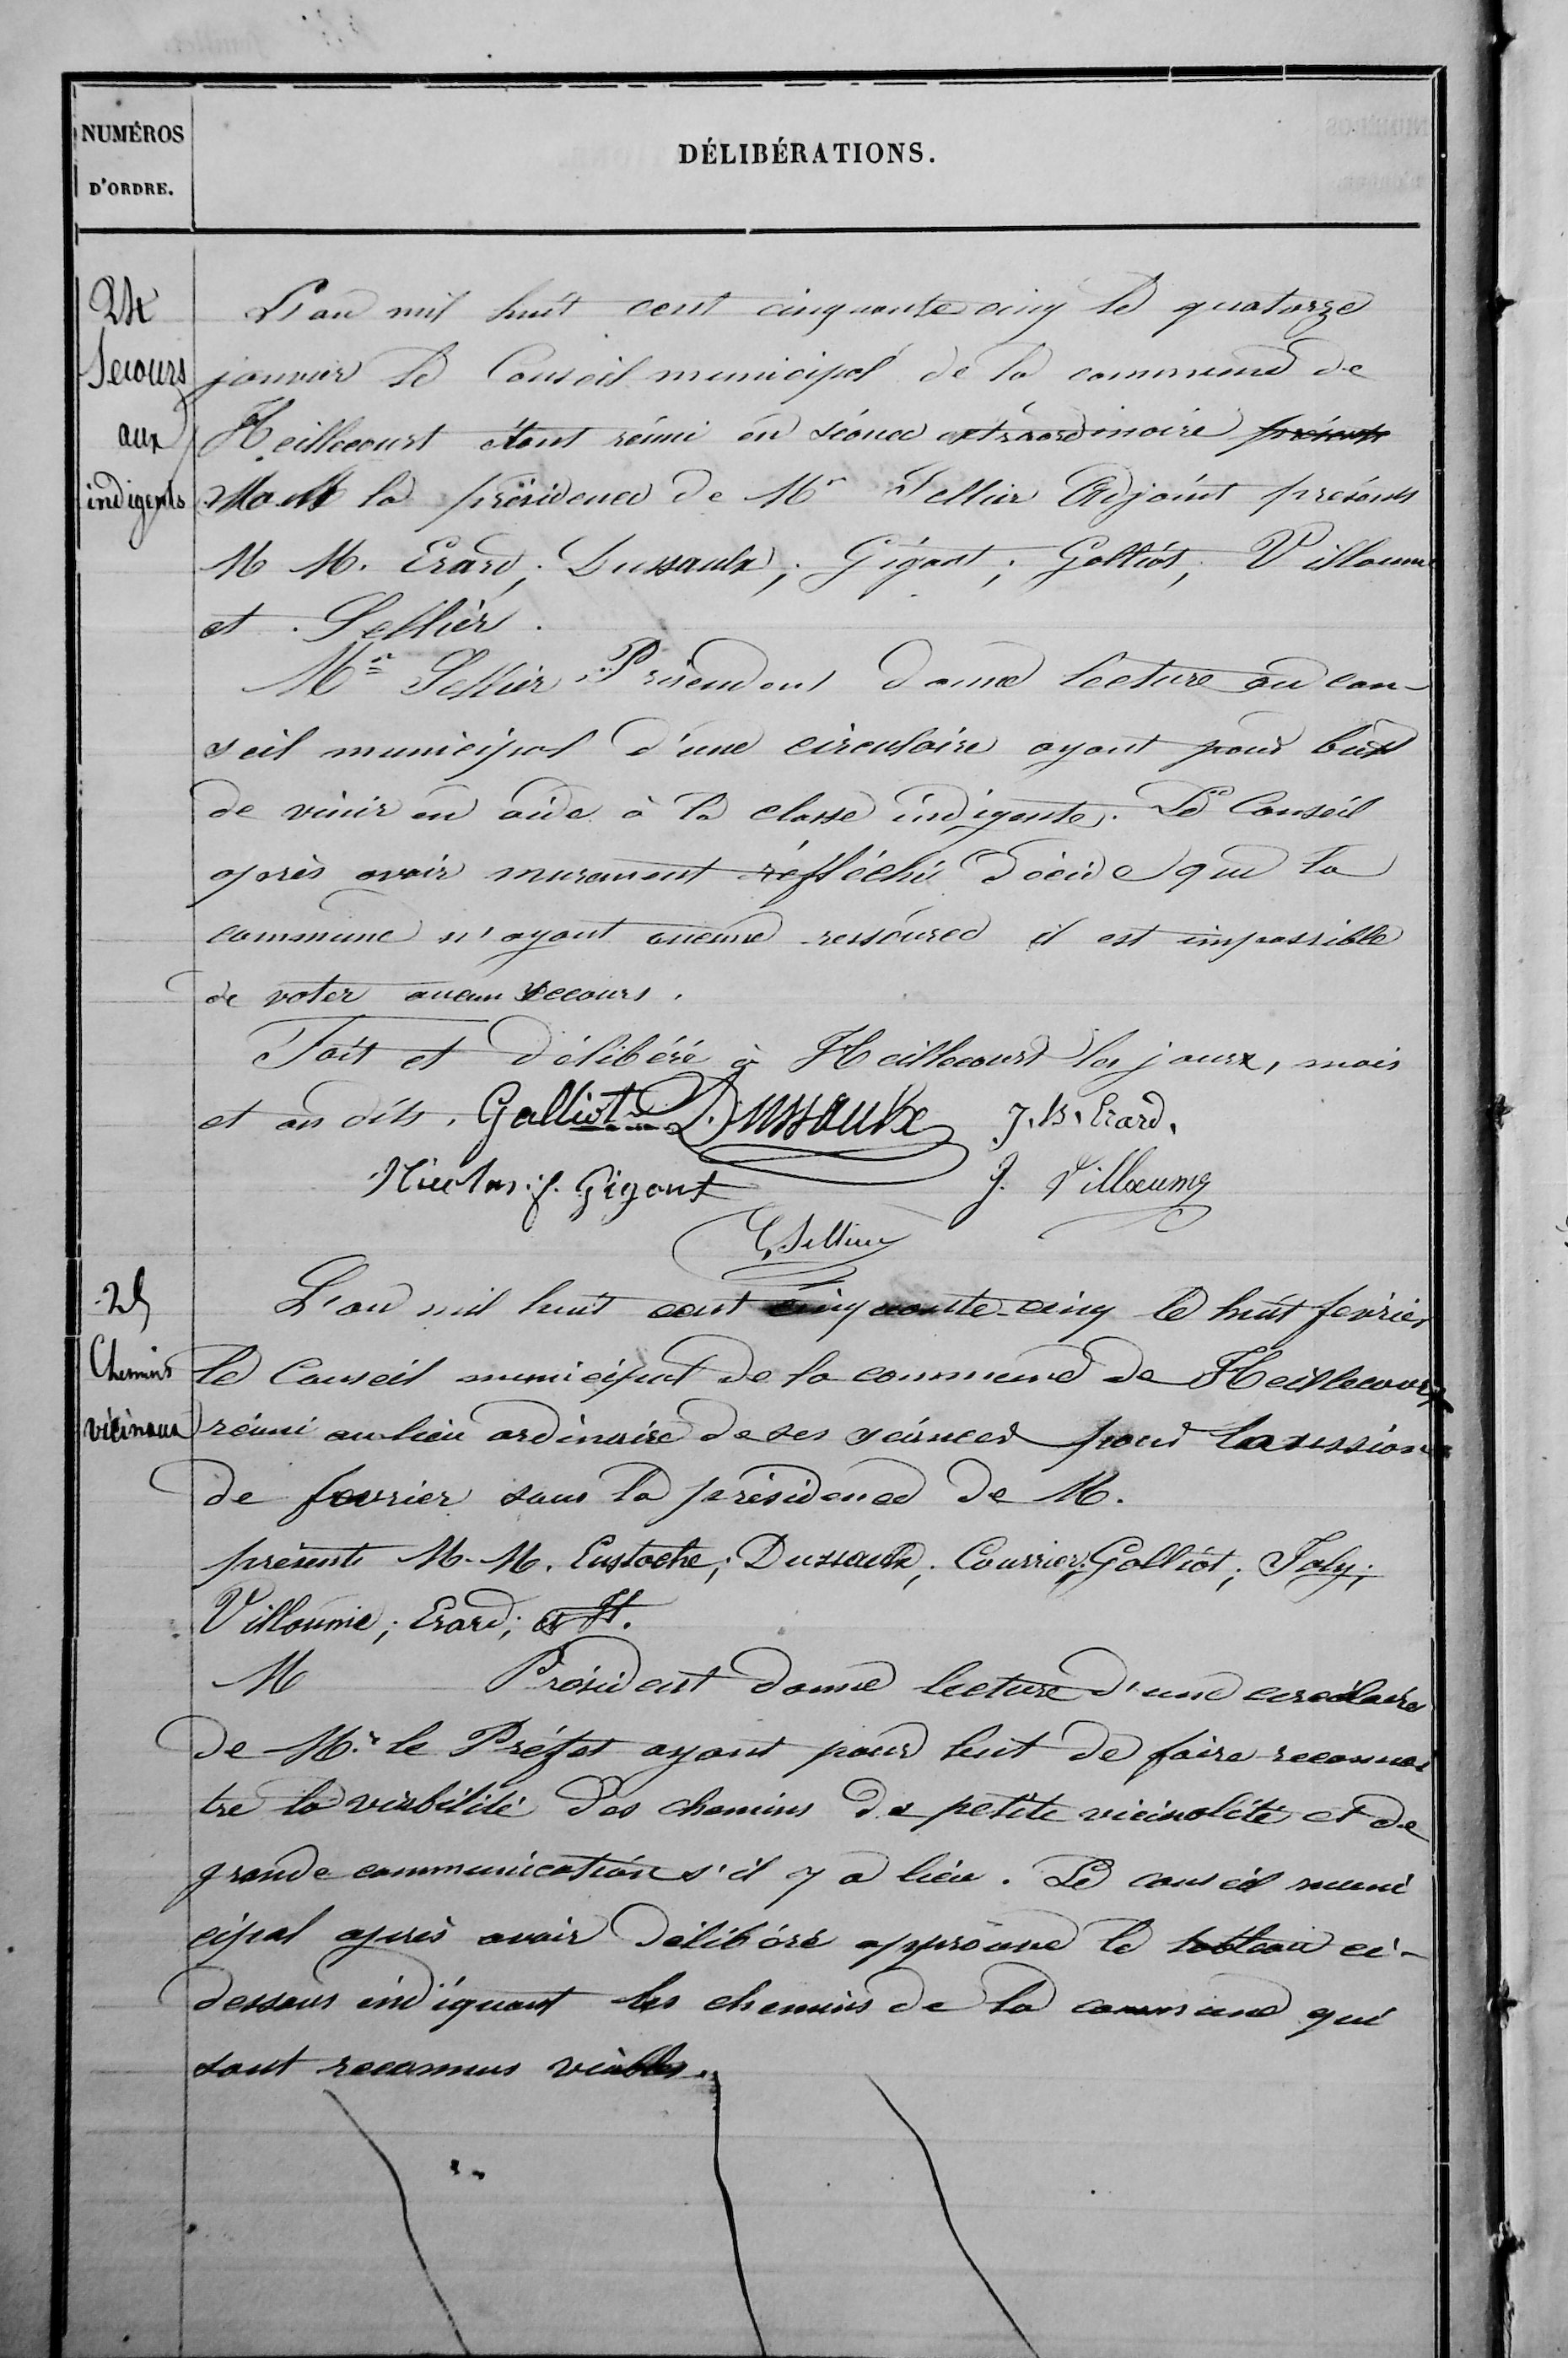 NUMÉROS
D'ORDRE.
DÉLIBÉRATIONS.
24
Secours
aux
indigents
L'an mil huit cent cinquante cinq le quatorze
janvier le Conseil municipal de la commune de
Heillecourt étant réuni en séance extraordinaire présents
la présidence de Mr Sellier Adjoint présents
M M. Erard; Dussaulx; Gigant; Galliot; Villaume
et Sellier.
Mr Sellier Président donne lecture au con-
seil municipal d'une circulaire ayant pour but
de venir en aide à la classe indigente. Le Conseil
après avoir murement réfléchi décide que la
commune n'ayant aucune ressource il est impossible
de voter aucun secours.
Fait et délibéré à Heillecourt les jours, mois
et an dits. Galliot Dussaulx J. B. Erard.
Nicolas f. Gigant J. Villaume
Sellier
25
Chemins
vicinaux
L'an mil huit cent cinquante-cinq le huit fevrier
le Conseil municipal de la commune de Heillecourt
réuni au lieu ordinaire de ses séances pour la session
de fevrier sous la présidence de M.
présents M. M. Eustache; Dussaulx; Courrier; Galliot; Joly;
Villaume; Erard; et H.
M Président donne lecture d'une circulaire
de Mr le Préfet ayant pour but de faire reconnai
tre la viabilité des chemins de petite vicinalité et de
grande communication s'il y a lieu. Le conseil muni
cipal après avoir délibéré approuve le tableau ci-
dessous indiquant les chemins de la commune qui
sont reconnus viables.